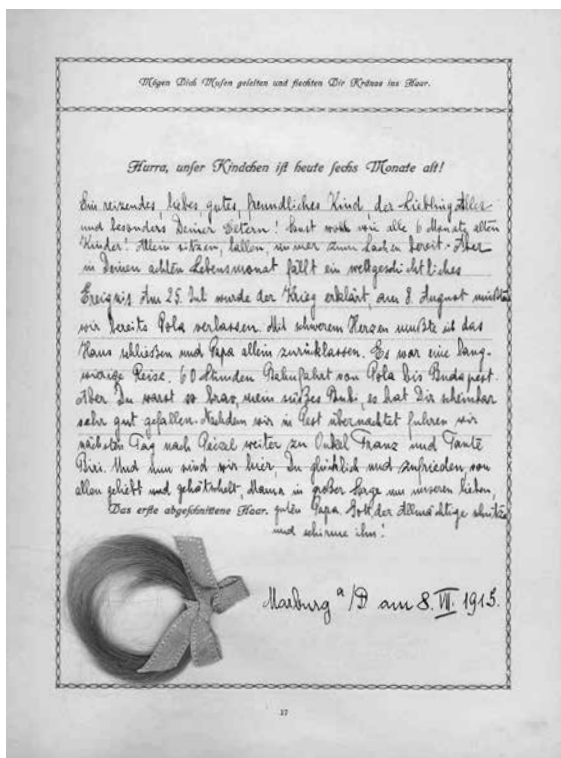 Mögen Dich Musen geleiten und flechten Dir Kränze ins Haar.
Hurra, unser Kindchen ist heute sechs Monate alt!
Ein reizendes, liebes, gutes, freundliches Kind, der Liebling Aller
und besonders Deiner Eltern! Sonst wohl wie alle 6 Monate alten
Kinder! Allein sitzen, lallen, immer zum Lachen bereit. Aber
in Deinen achten Lebensmonat fällt ein weltgeschichtliches
Ereignis. Am 25. Juli wurde der Krieg erklärt, am 8. August mußten
wir bereits Pola verlassen. Mit schwerem Herzen mußte ich das
Haus schließen und Papa allein zurücklassen. Es war eine lang-
wierige Reise. 60 Stunden Bahnfahrt von Pola bis Budapest.
Aber Du warst so brav, mein süßes Bubi, es hat Dir scheinbar
sehr gut gefallen. Nachdem wir in Pest übernachtet fuhren wir
nächsten Tag nach weiter zu Onkel Franz und Tante
Und nun sind wir hier, Du glücklich und zufrieden von
allen geliebt und gehätschelt, Mama in großer Sorge um unseren lieben,
Das erste abgeschnittene Haar. guten Papa. Gott, der Allmächtige schütze
und schirme ihn!
Marburg a/D am 8. VII. 1915.
17